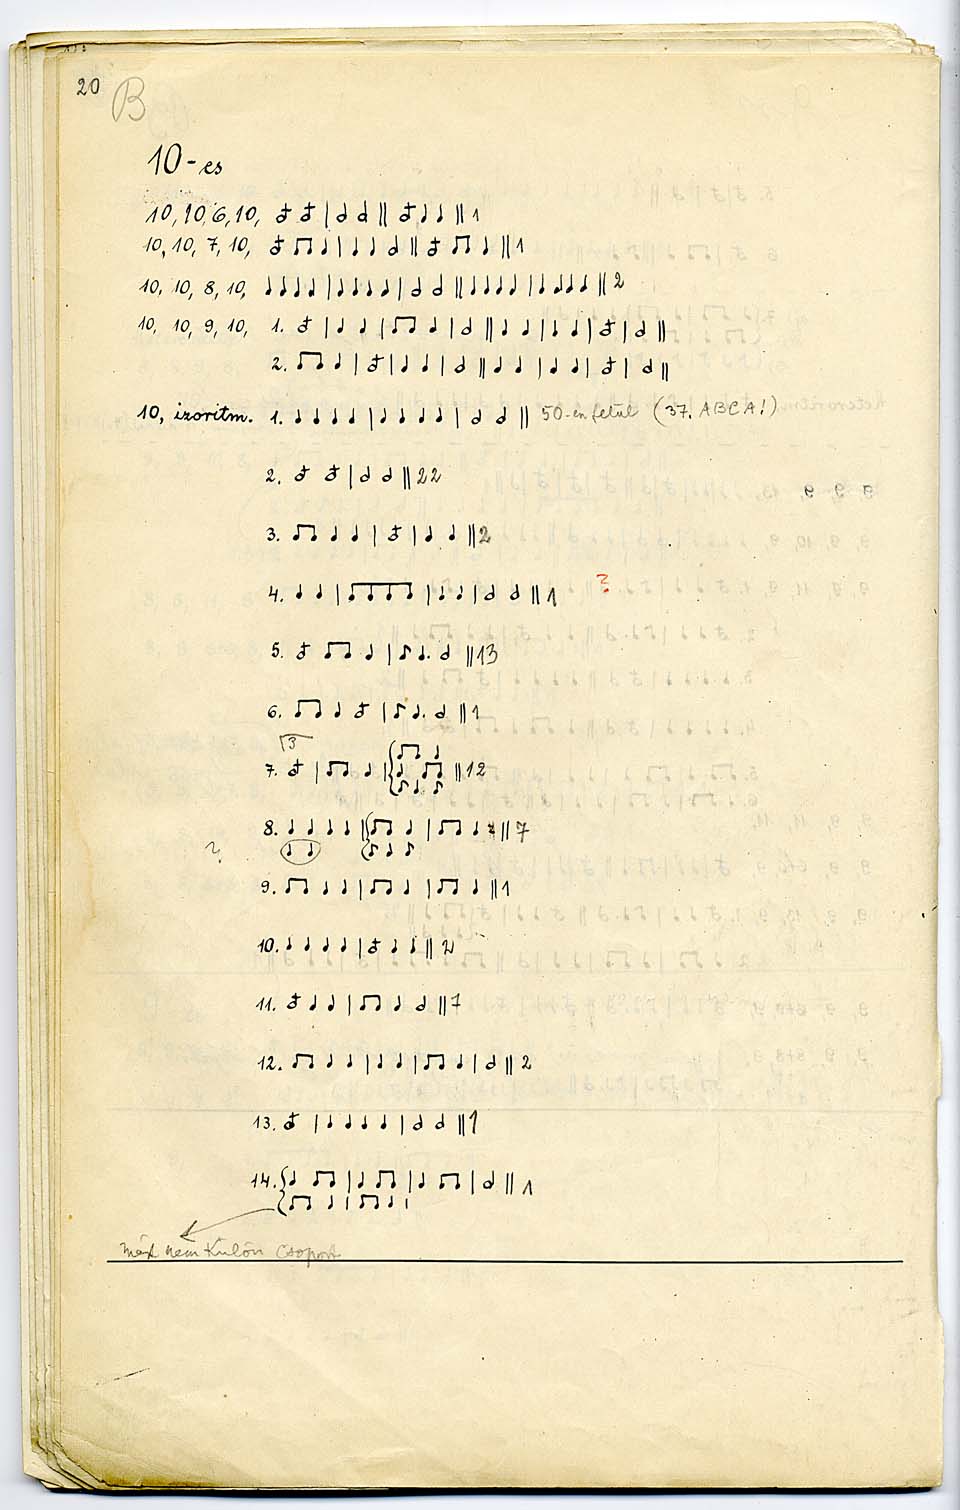 20
B
10-es
10, 10, 6, 10, 𝅗𝅥 𝅗𝅥 | 𝅗𝅥 𝅗𝅥 || 𝅗𝅥 ♩ ♩ || 1
10, 10, 7, 10, 𝅗𝅥 ♫ ♩ | ♩ ♩ 𝅗𝅥 || 𝅗𝅥 ♫ ♩ || 1
10, 10, 8, 10, ♩ ♩ ♩ ♩ | ♩ ♩ ♩ ♩ | 𝅗𝅥 𝅗𝅥 || ♩ ♩ ♩ ♩ | ♩ ♩ ♩ ♩ || 2
10, 10, 9, 10, 1. 𝅗𝅥 | ♩ ♩ | ♫ ♩ | 𝅗𝅥 || ♩ ♩ | ♩ ♩ | 𝅗𝅥 | 𝅗𝅥 ||
2. ♫ ♩ | 𝅗𝅥 | ♩ ♩ | 𝅗𝅥 || ♩ ♩ | ♩ ♩ | 𝅗𝅥 | 𝅗𝅥 ||
10, izoritm. 1. ♩ ♩ ♩ ♩ | ♩ ♩ ♩ ♩ | 𝅗𝅥 𝅗𝅥 || 50-en felül (37. ABCA!)
2. 𝅗𝅥 𝅗𝅥 | 𝅗𝅥 𝅗𝅥 || 22
3. ♫ ♩ ♩ | 𝅗𝅥 | ♩ ♩ || 2
?
4. ♩ ♩ | ♫♫ | ♩ ♩ | 𝅗𝅥 𝅗𝅥 || 1
5. 𝅗𝅥 ♫ ♩ | ♪ ♩. 𝅗𝅥 || 13
6. ♫ ♩ 𝅗𝅥 | ♪ ♩. 𝅗𝅥 || 1
3
7. 𝅗𝅥 | ♫ ♩ | { ♫ ♩ / ♩ ♫ / ♪ ♩ ♪ || 12
8. ♩ ♩ ♩ ♩ || { ♫ ♩ | ♫ ♩ 𝄽 || 7
? ♩ ♩ ♪ ♩ ♪
9. ♫ ♩ ♩ | ♫ ♩ | ♫ ♩ || 1
10. ♩ ♩ ♩ ♩ | 𝅗𝅥 ♩ ♩ || 2
11. 𝅗𝅥 ♩ ♩ | ♫ ♩ 𝅗𝅥 || 7
12. ♫ ♩ ♩ | ♩ ♩ | ♫ ♩ | 𝅗𝅥 || 2
13. 𝅗𝅥 | ♩ ♩ ♩ ♩ | 𝅗𝅥 𝅗𝅥 || 1
14. { ♩ ♫ | ♩ ♫ | ♩ ♫ | 𝅗𝅥 || 1
♫ ♩ | ♫ ♩ |
nem külön csoport